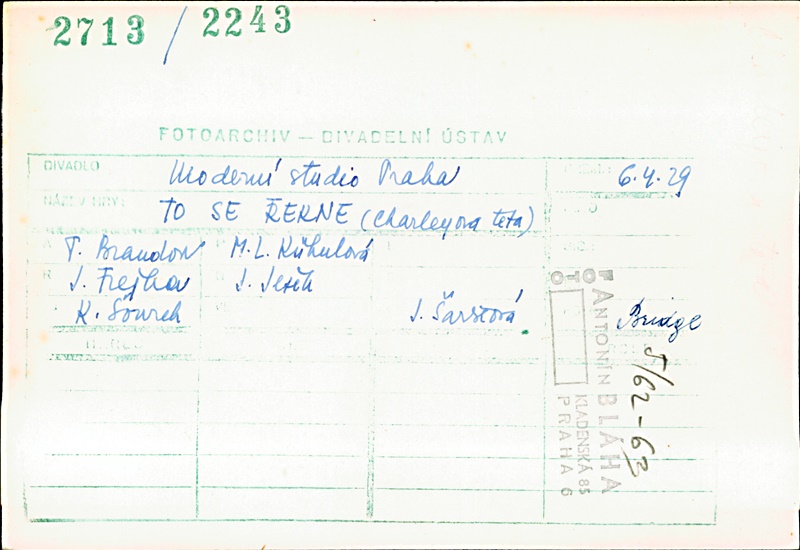 2713 / 2243
FOTOARCHIV — DIVADELNÍ ÚSTAV
DIVADLO Moderní studio Praha 6.4.29
NÁZEV HRY: TO SE ŘEKNE (Charleyova teta)
T. Brandon M.L. Kühnlová
J. Frejka J. Ježek
K. Šourek J. Šarseová Bridge
FOTO
ANTONÍN BLÁHA
KLADENSKÁ 85
PRAHA 6
5/62-63